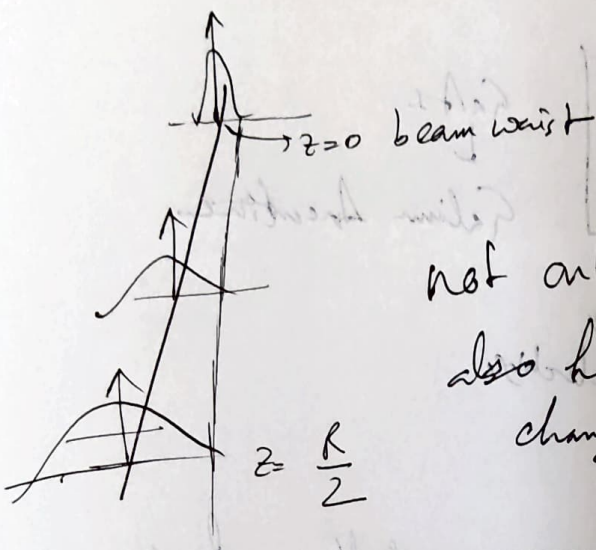 z=0 beam waist
not on
also h
chan
z= R/2